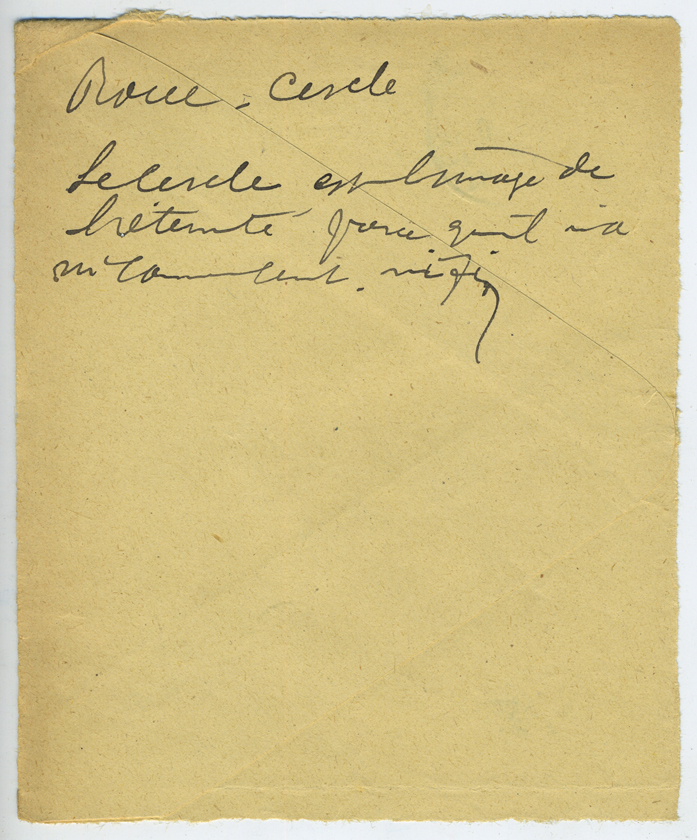 Roue - Cercle
Le Cercle est l'image de
l'éternité parce qu'il n'a
ni commencement. ni fin